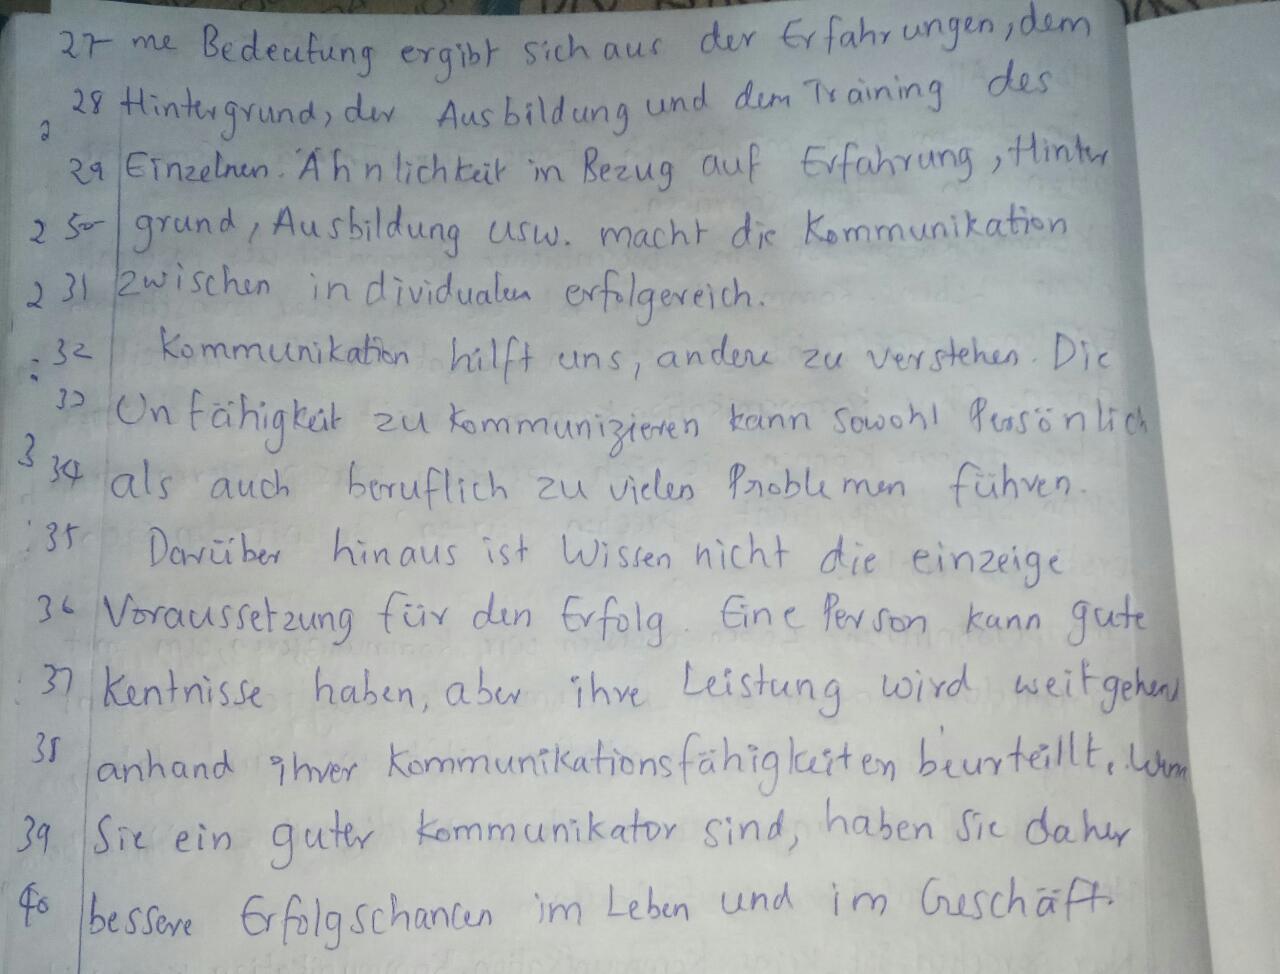 27 me Bedeutung ergibt sich aus der Erfahrungen, dem
28 Hintergrund, der Ausbildung und dem Training des
29 Einzelnen. Ähnlichkeit in Bezug auf Erfahrung, Hinter
grund, Ausbildung usw. macht die Kommunikation
31 zwischen individualen erfolgereich.
32 Kommunikation hilft uns, andere zu verstehen. Die
33 Unfähigkeit zu kommunizieren kann sowohl Persönlich
34 als auch beruflich zu vielen Problemen führen.
35 Darüber hinaus ist Wissen nicht die einzeige
36 Voraussetzung für den Erfolg. Eine Person kann gute
37 Kentnisse haben, aber ihre Leistung wird weitgehend
38 anhand ihrer Kommunikationsfähigkeiten beurteillt. Wenn
39 Sie ein guter Kommunikator sind, haben Sie daher
40 bessere Erfolgschancen im Leben und im Geschäft.